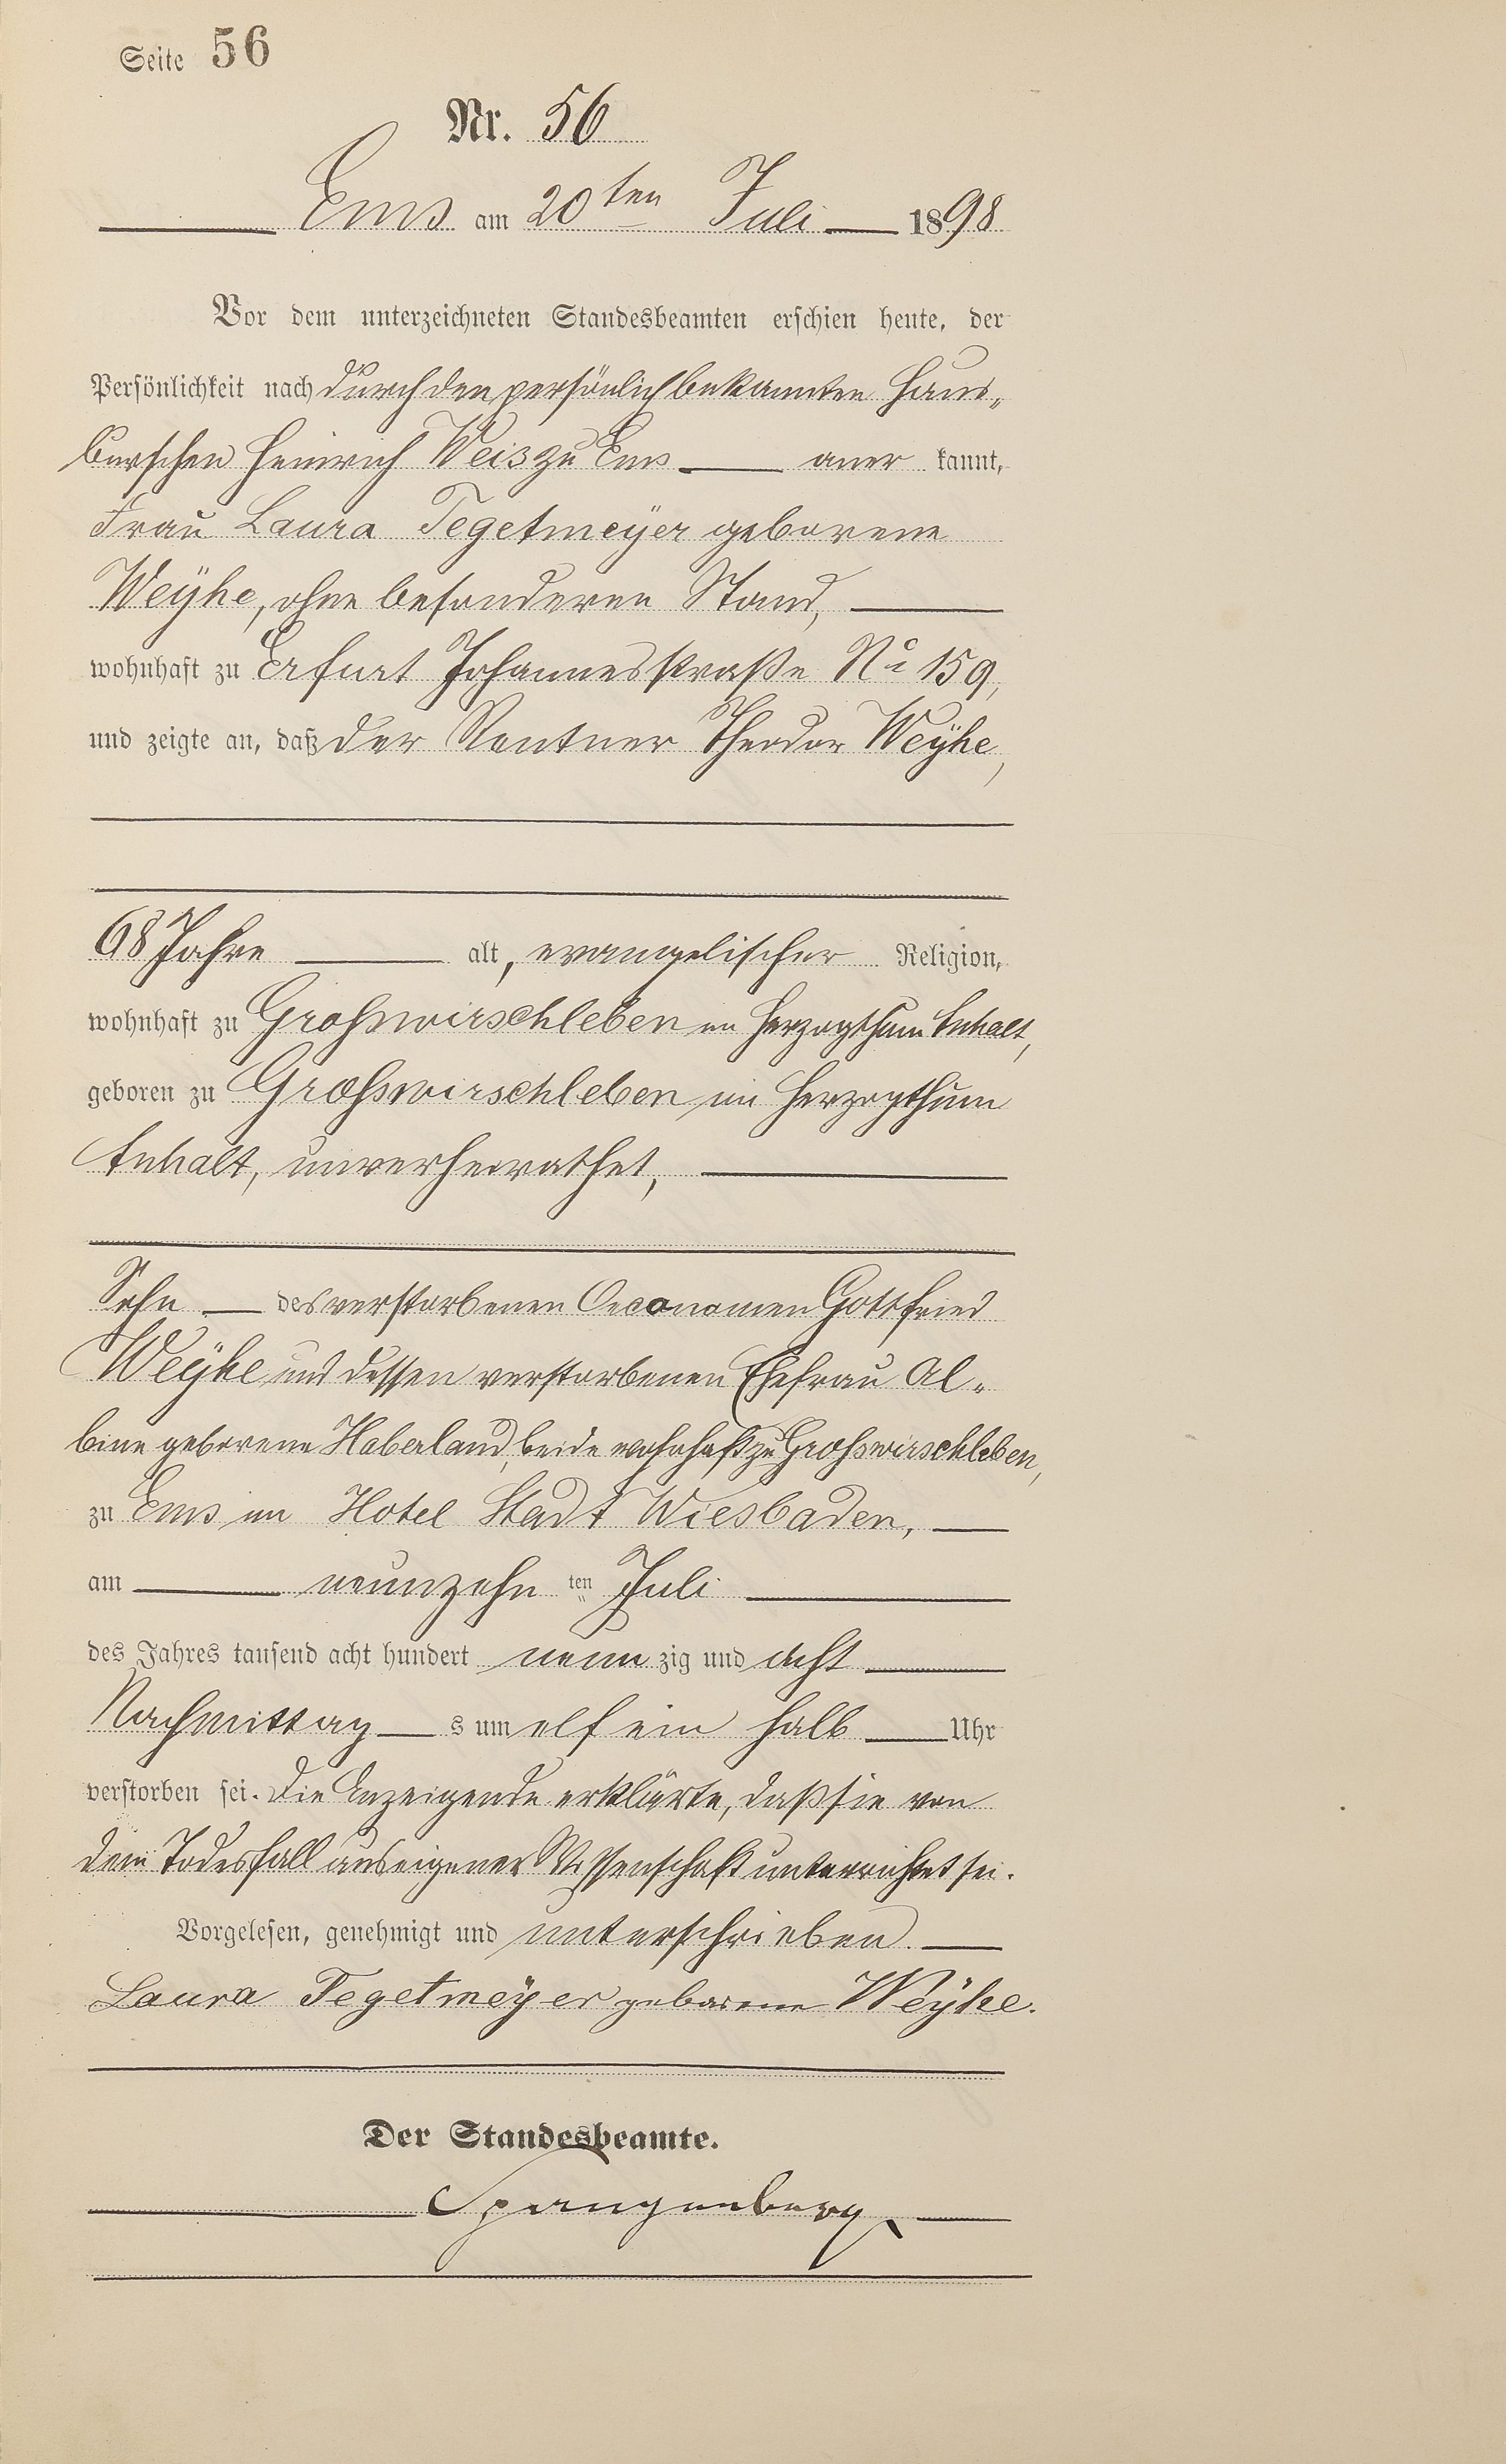 Seite 56
Nr. 56
Ems am 20ten Juli 1898
Vor dem unterzeichneten Standesbeamten erschien heute, der
Persönlichkeit nach durch den persönlich bekannten Haus„
burschen Heinrich Weis zu Ems aner kannt,
Frau Laura Tegetmeÿer geborene
Weÿhe, ohne besonderen Stand,
wohnhaft zu Erfurt Johannesstraße No 159,
und zeigte an, daß der Rentner Theodor Weÿhe,
68 Jahre alt, evangelischer Religion,
wohnhaft zu Großwirschleben im Herzogthum Anhalt,
geboren zu Großwirschleben im Herzogthum
Anhalt, unverheirathet,
Sohn des verstorbenen Oeconomen Gottfried
Weÿhe und dessen verstorbenen Ehefrau Al„
bine geborene Haberland, beide wohnhaft zu Großwirschleben,
zu Ems im Hotel Stadt Wiesbaden,
am neunzehn ten Juli
des Jahres tausend acht hundert neun zig und acht
Nachmittag s um elf ein halb Uhr
verstorben sei. Die Anzeigende erklärte, daß sie von
dem Todesfall aus eigener Wissenschaft unterrichtet sei.
Vorgelesen, genehmigt und unterschrieben.
Laura Tegetmeÿer geborene Weÿhe.
Der Standesbeamte.
Spangenberg